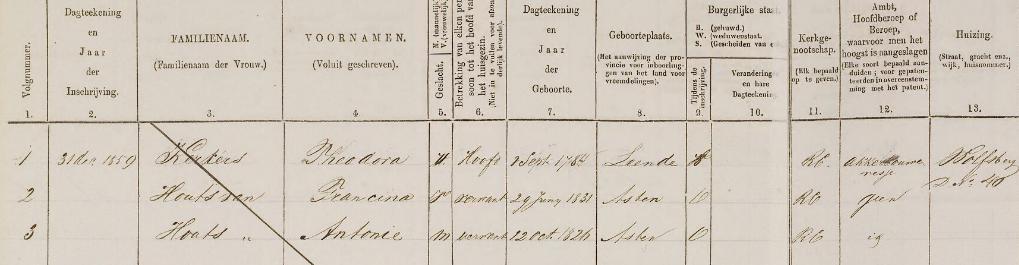 Volgnummer.
Dagteekening
en
Jaar
der
Inschrijving.
FAMILIENAAM.
(Familienaam der Vrouw.)
VOORNAMEN.
(Voluit geschreven).
Geslacht. M. (mannelijk) V. (vrouwelijk).
Betrekking van elken per-
soon tot het hoofd van
het huisgezin.
(Niet in te vullen voor afzon-
derlijk levende).
Dagteekening
en
Jaar
der
Geboorte.
Geboorteplaats.
(Met aanwijzing der pro-
vincie voor inboorlin-
gen van het land voor
vreemdelingen).
Burgerlijke staat
H. (gehuwd.)
W. (weduwenstaat.
S. (Gescheiden van
Tijdens de
inschrijving.
Verandering
en hare
Dagteekening
Kerkge-
nootschap.
(Elk bepaald
op te geven.)
Ambt,
Hoofdberoep of
Beroep,
waarvoor men het
hoogst is aangeslagen
(Elke soort bepaald aan-
duiden; voor gepaten-
teerden in overeenstem-
ming met het patent.)
Huizing.
(Straat, gracht enz.,
wijk, huisnummer.)
1. 2. 3. 4. 5. 6. 7. 8. 9. 10. 11. 12. 13.
1 31 dec 1859 Kerkers Theodora V Hooft 2 Sept. 1784 Leende RC Akkerbouwe Wolfsberg
resse D No. 40
2 Hoats van Francina V verwant 29 Juny 1831 Asten O RC geen
3 Hoats „ Antonie M verwant 12 Oct. 1826 Asten O RC id